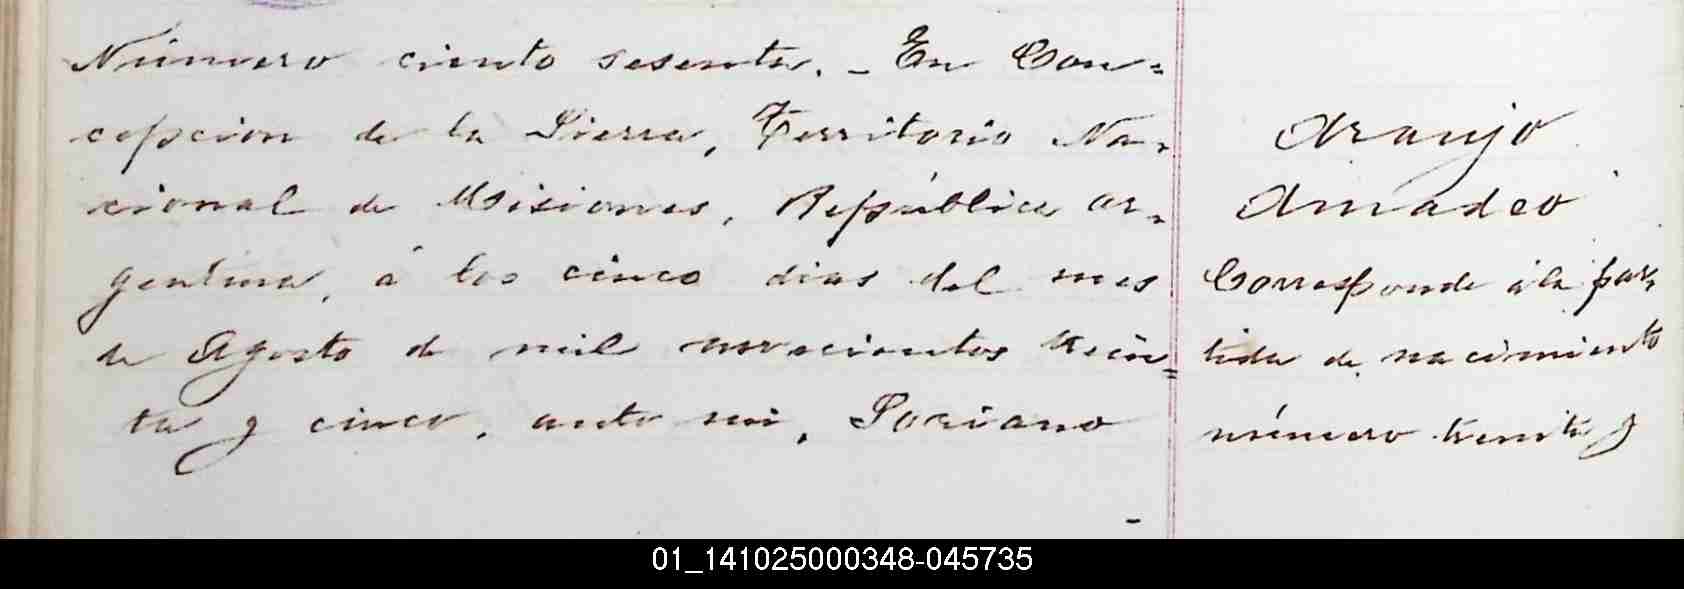 Número ciento sesenta. - En Con=
cepcion de la Sierra, Territorio Na=
cional de Misiones, República Ar=
gentina, á los cinco dias del mes
de Agosto de mil novecientos trein=
ta y cinco, ante mi, Soriano
Araujo
Amadeo
Corresponde á la par=
tida de nacimiento
número treinta y
01_141025000348-045735